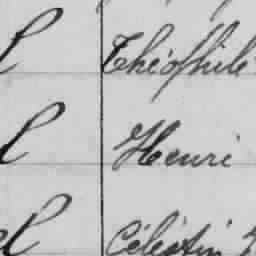 l Théophile
l Henri
el Célestin